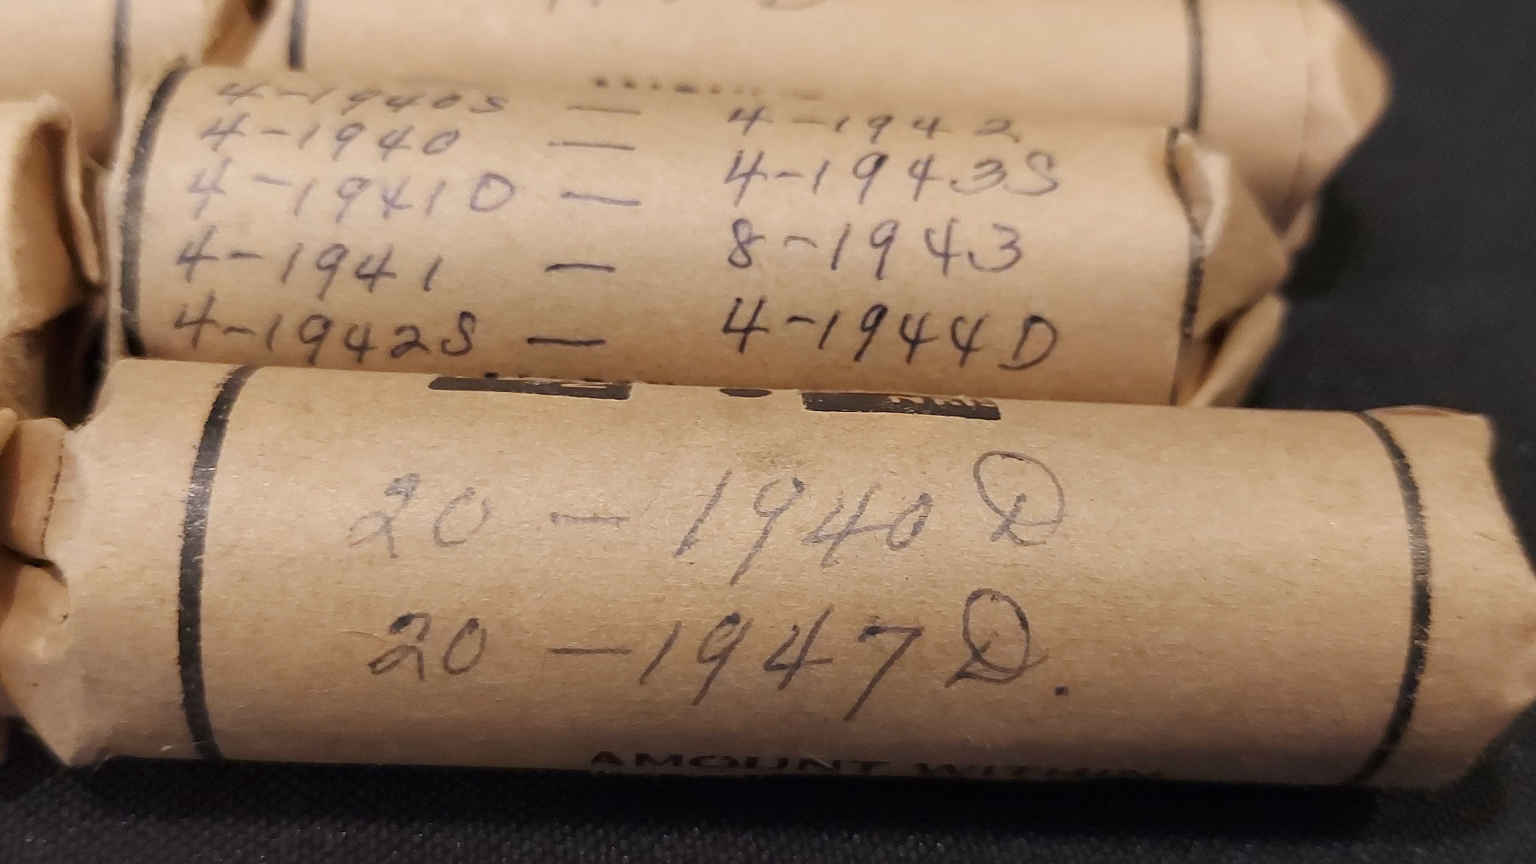 4-1940S — 4-1942
4-1940 — 4-1943S
4-1941D — 4-1943S
4-1941 — 8-1943
4-1942S — 4-1944D
20 - 1940 D
20 - 1947 D.
AMOUNT WITHIN